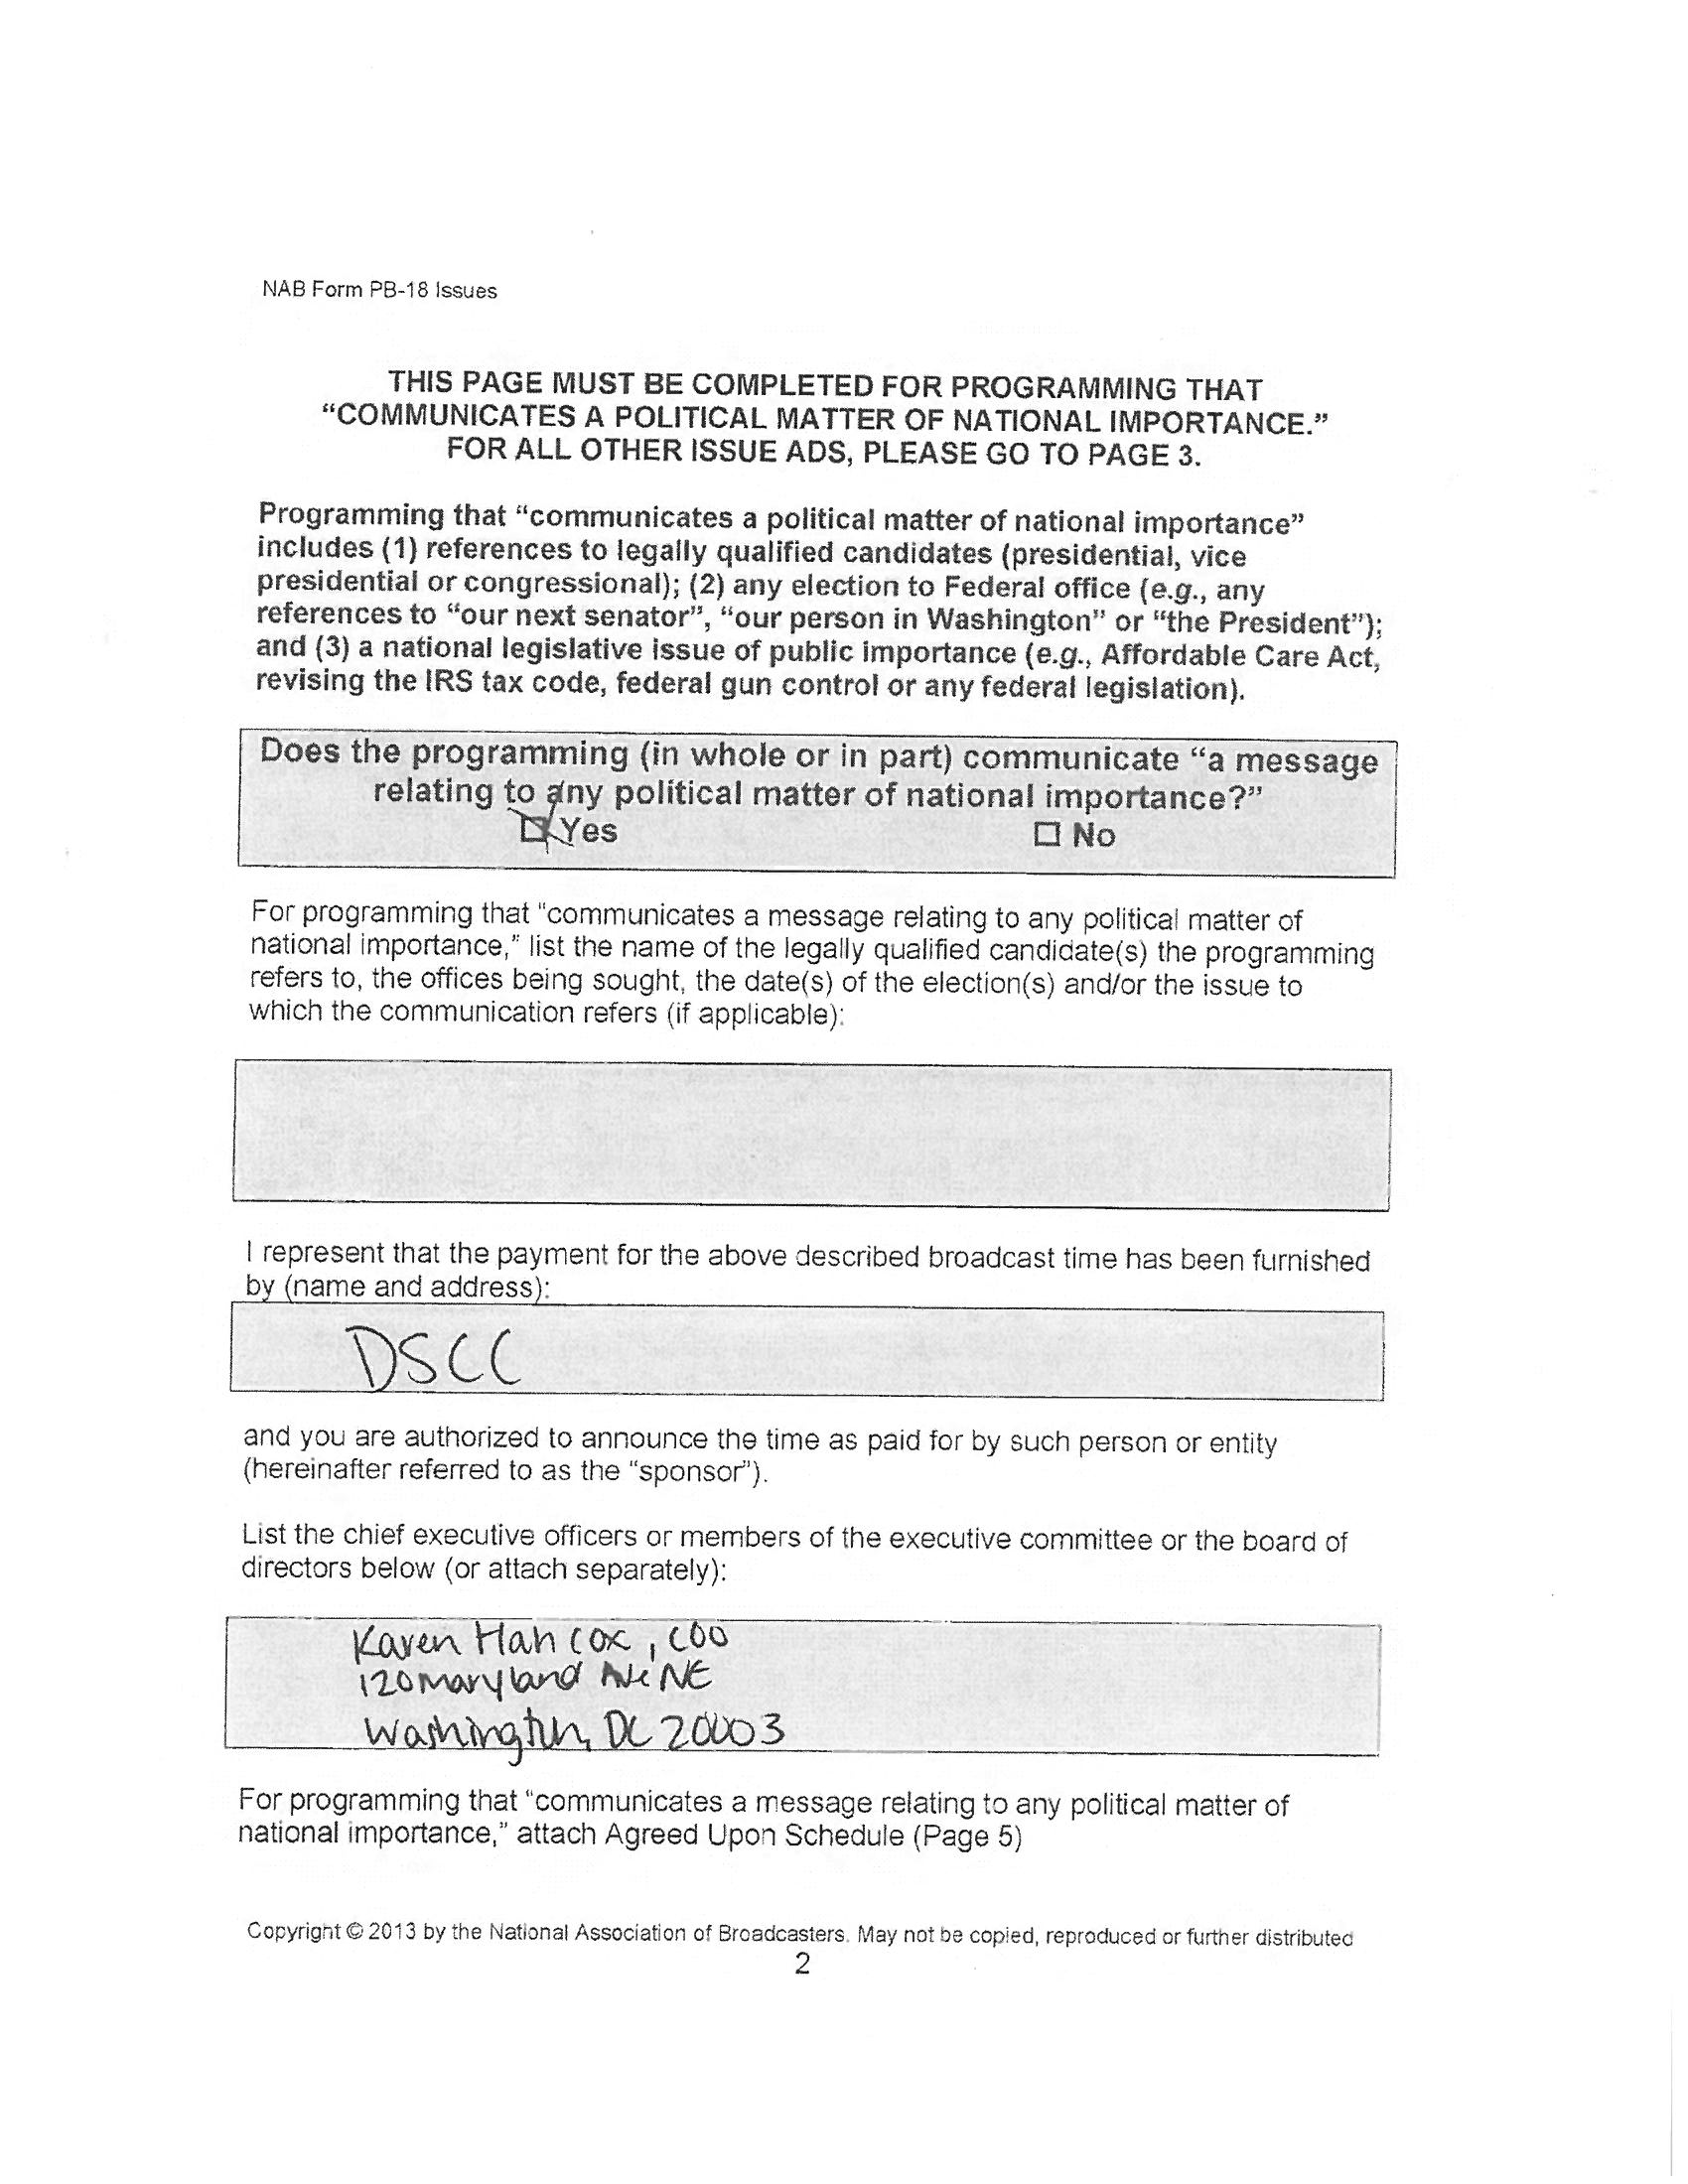 NAB Form PB-18 Issues
THIS PAGE MUST BE COMPLETED FOR PROGRAMMING THAT
“COMMUNICATES A POLITICAL MATTER OF NATIONAL IMPORTANCE.”
FOR ALL OTHER ISSUE ADS, PLEASE GO TO PAGE 3.
Programming that “communicates a political matter of national importance”
includes (1) references to legally qualified candidates (presidential, vice
presidential or congressional); (2) any election to Federal office (e.g., any
references to “our next senator”, “our person in Washington” or “the President”);
and (3) a national legislative issue of public importance (e.g., Affordable Care Act,
revising the IRS tax code, federal gun control or any federal legislation).
Does the programming (in whole or in part) communicate “a message
relating to any political matter of national importance?”
☒ Yes ☐ No
For programming that “communicates a message relating to any political matter of
national importance,” list the name of the legally qualified candidate(s) the programming
refers to, the offices being sought, the date(s) of the election(s) and/or the issue to
which the communication refers (if applicable):
I represent that the payment for the above described broadcast time has been furnished
by (name and address):
DSCC
and you are authorized to announce the time as paid for by such person or entity
(hereinafter referred to as the “sponsor”).
List the chief executive officers or members of the executive committee or the board of
directors below (or attach separately):
Karen Hancox, COO
120 Maryland Ave NE
Washington, DC 20003
For programming that “communicates a message relating to any political matter of
national importance,” attach Agreed Upon Schedule (Page 5)
Copyright © 2013 by the National Association of Broadcasters. May not be copied, reproduced or further distributed
2